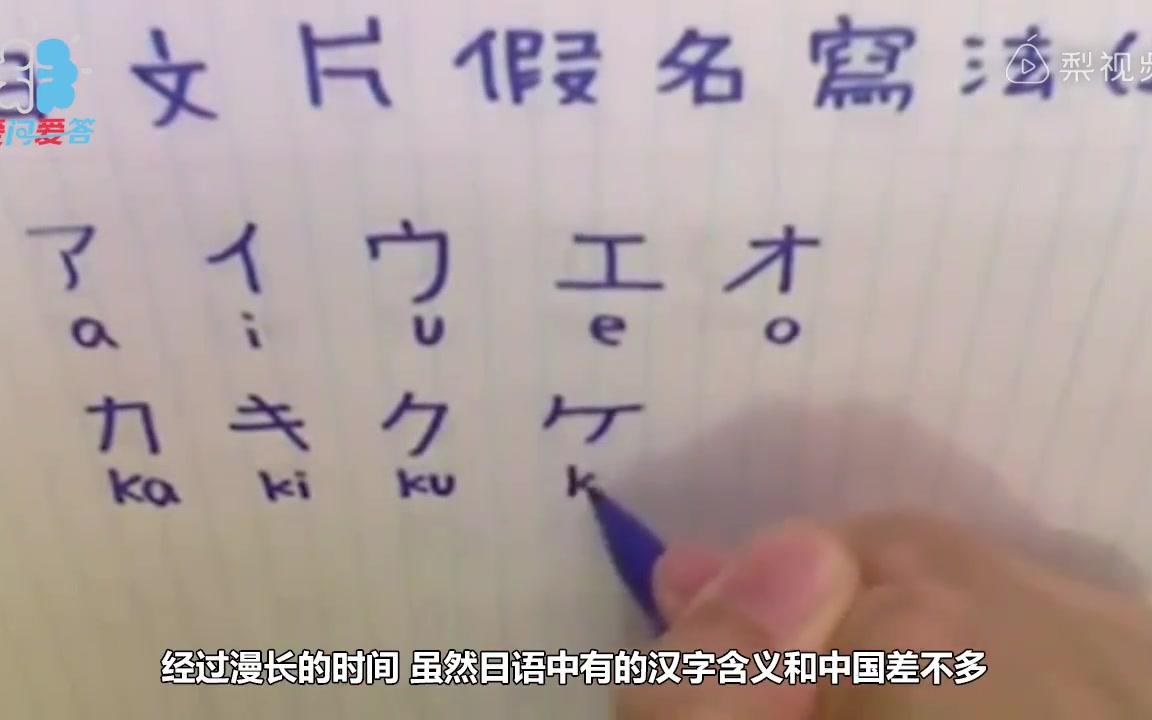 文片假名寫法
梨视频
爱问爱答
アイウエオ
a i u e o
カキクケ
ka ki ku k
经过漫长的时间 虽然日语中有的汉字含义和中国差不多